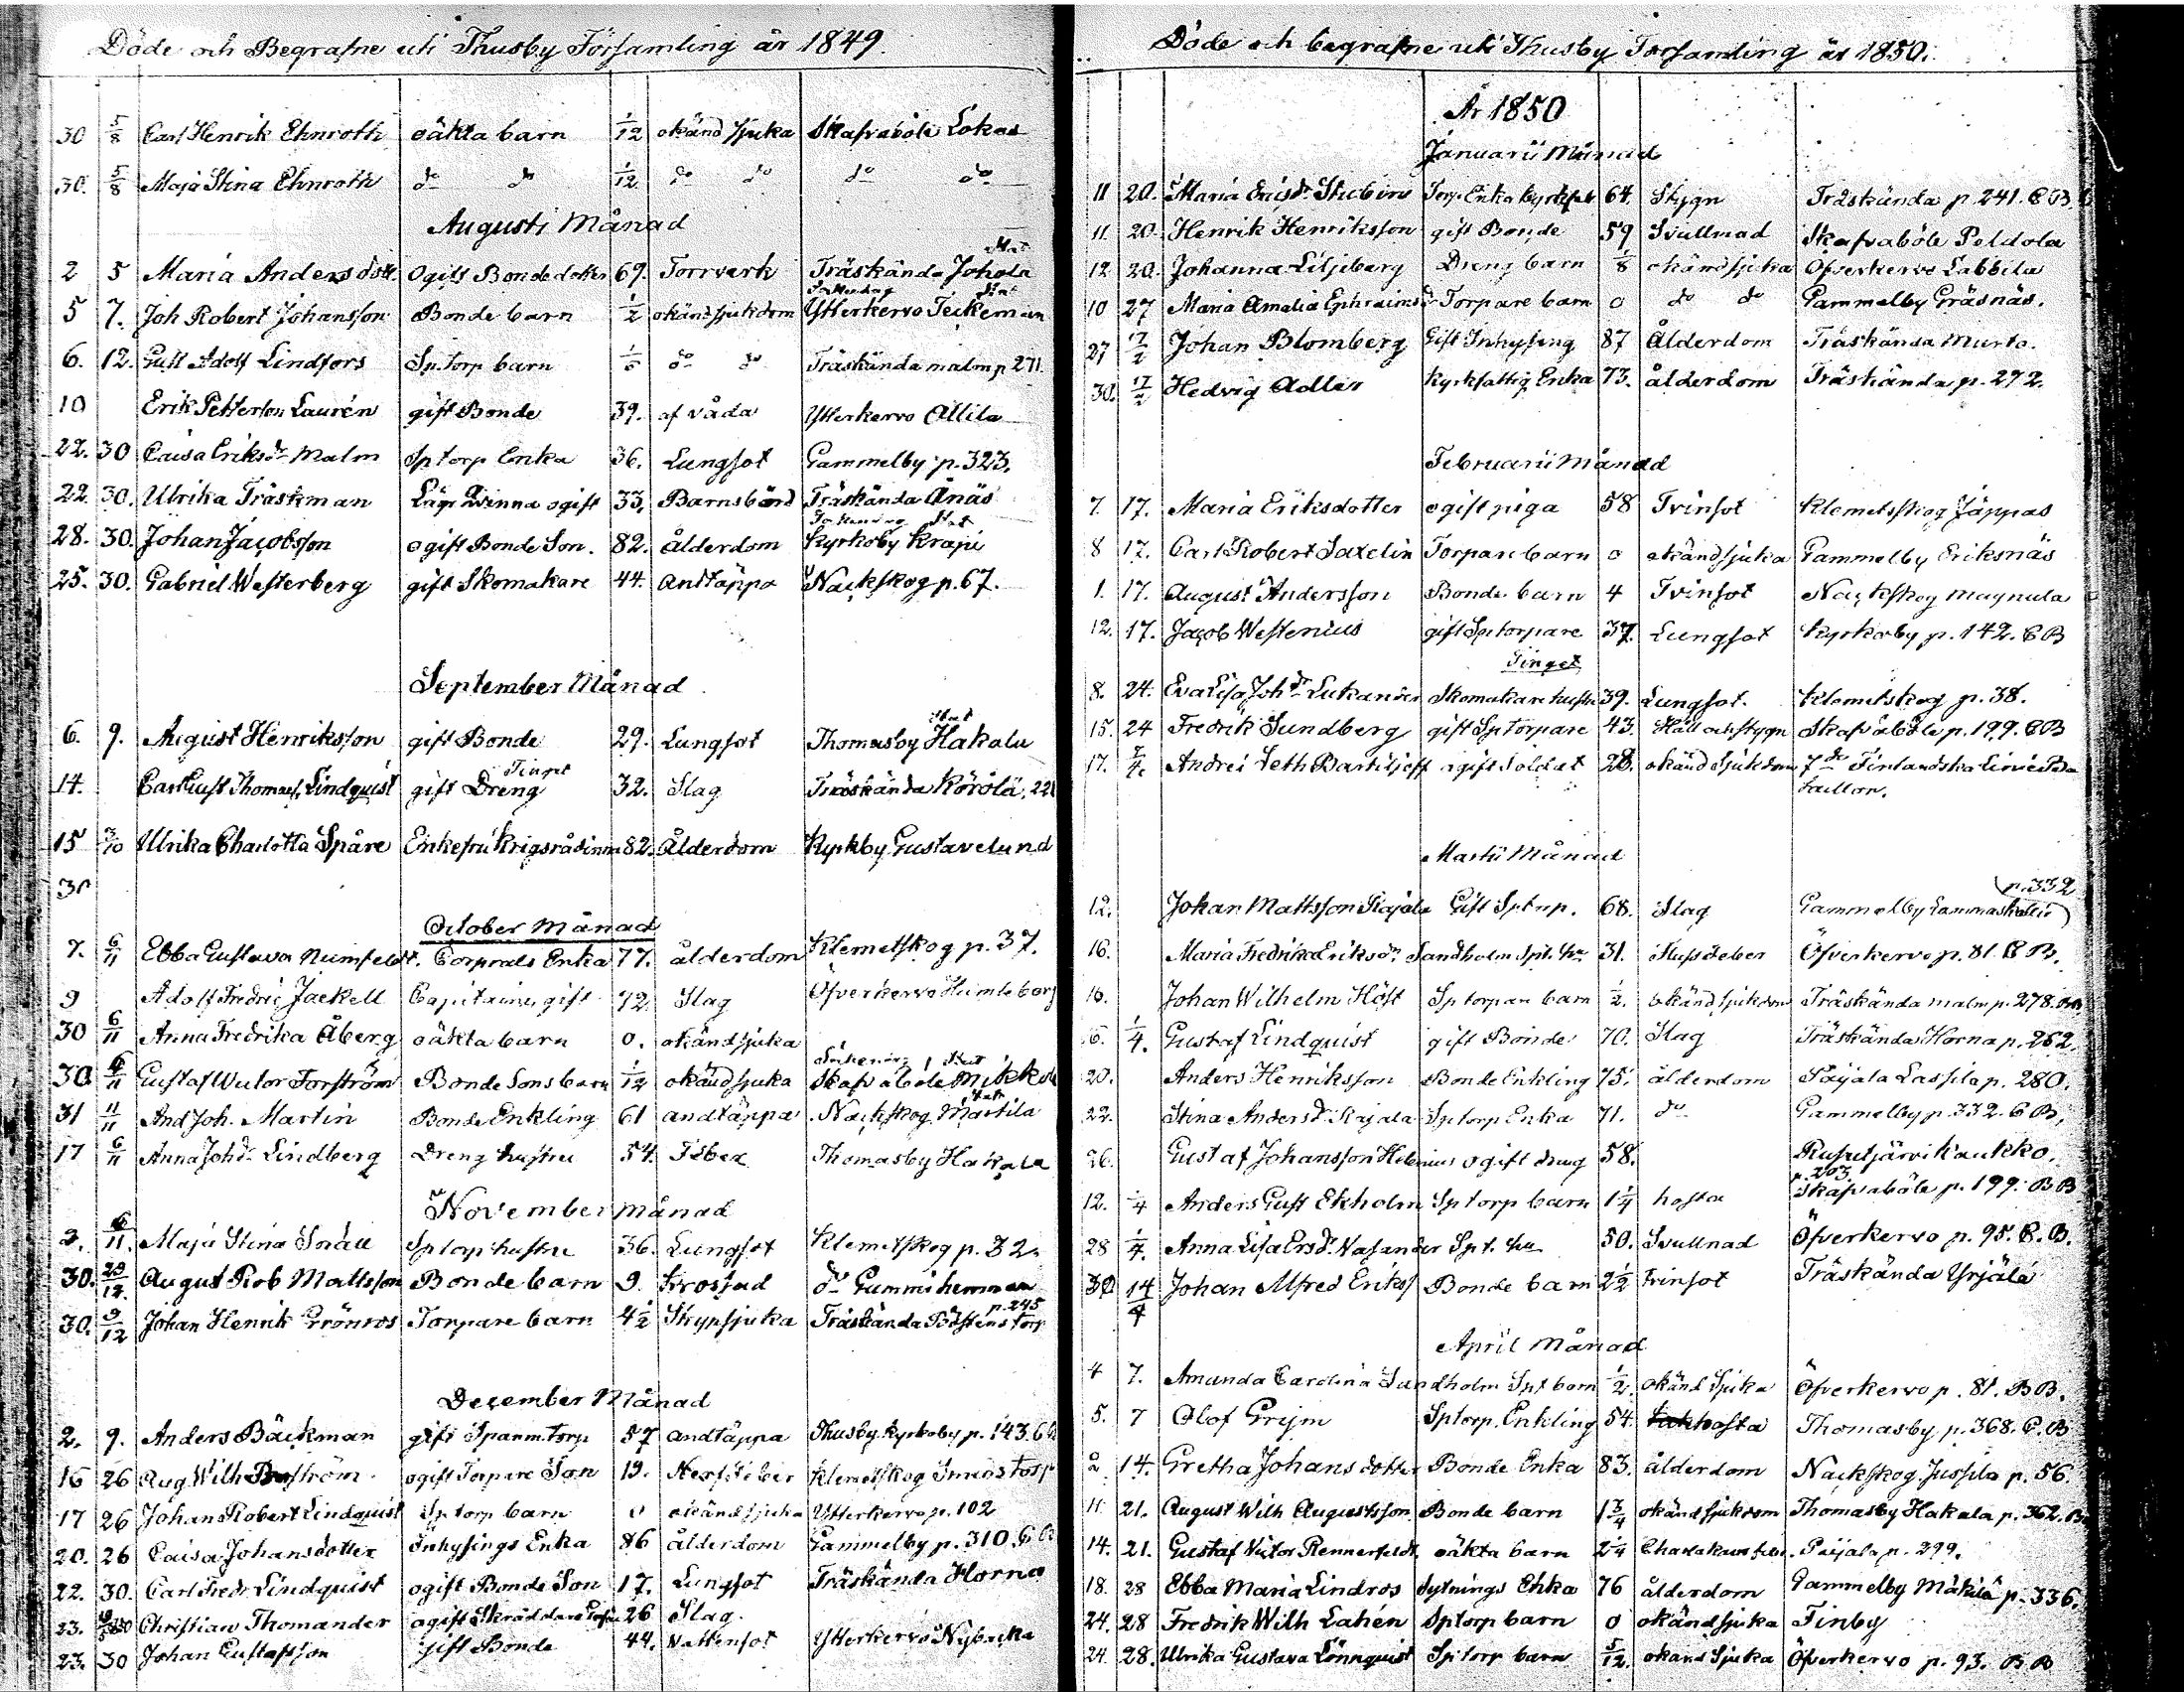 Döde och Begrafne uti Thusby Församling år 1849.
30 5/8 Carl Henrik Ehnroth oäkta barn 1/12 okänd sjuka Skafvaböle Lokas
30. 5/8 Maja Stina Ehnroth do do 1/12 do do do do
Augusti Månad
2 5 Maria Andersdott. Ogift Bondedotter 69. Torrverk Träskända Johola
5 7. Joh Robert Johansson Bonde barn 1/2 okänd sjukdom Ytterkervo Teikeman
6. 12. Gust Adolf Lindfors Sp torp barn do do Träskända malm p 271
10 Erik Petterson Laurén gift Bonde 39. af våda Ytterkervo Allila
22. 30 Caisa Eriksdr Malm Sptorp Enka 36. Lungsot Gammelby p. 323.
22 30. Ulrika Träskman Läg Qvinna ogift 33. Barnsbörd Träskända Ånäs
28. 30. Johan Jacobsson ogift Bonde Son. 82. ålderdom Kyrkoby Krapi
25. 30. Gabriel Westerberg gift Skomakare 44. Andtäppa Nackskog p. 67.
September Månad
6. 9. August Henriksson gift Bonde 29. Lungsot Thomasby Hakala
14. Carl Gust Thomass. Lindquist gift Dreng 32. Slag Träskända Körölä
15 3/10 Ulrika Charlotta Spåre Enkefru Krigsrådinna 82. Ålderdom Kyrkby Gustavelund
30
October Månad
7. 6/11 Ebba Gustava Numfeldt. Corporals Enka 77. ålderdom Klemetskog p. 37.
9 Adolf Fredric Jackell Capitaine gift 72 Slag Öfverkervo Humleborg
30 6/11 Anna Fredrika Åberg oäkta barn 0. okänd sjuka
30 6/11 Gustaf Victor Forström Bonde Sons barn 1/12 okänd sjuka Skafvaböle Mikkola
31 11/11 And Joh. Martin Bonde Enkling 61 andtäppa Nackskog Martila
17 6/11 Anna Johdr Lindberg Dreng hustru 54. Feber Thomasby Hakala
November månad
2. 6/11. Maja Stina Snäll Sptorp hustru 36. Lungsot Klemetskog p. 32.
30. August Rob Mattsson Bonde barn 9. Krossad do Gummi hemman
30. 9/12 Johan Henrik Grönros Torpare barn 4 1/2 Skrypsjuka Träskända torp p. 245
December Månad
2. 9. Anders Bäckman gift Spanm. torp 57 andtäppa Thusby Kyrkoby p. 143.
16 26 Aug Wilh ogift Torpare Son 19. Nerffeber Klemetskog
17 26 Johan Robert Lindquist Sp torp barn 0 okänd sjuka Ytterkervo p. 102
20. 26 Caisa Johansdotter Inhysings Enka 86 ålderdom Gammelby p. 310.
22. 30. Carl Fredr Lindquist ogift Bonde Son 17. Lungsot Träskända Horna
23. Christian Thomander ogift Skräddare 26 Slag.
23. 30 Johan Gustafsson gift Bonde 44. Vattensot Ytterkervo Nybacka
Döde och begrafne uti Thusby Församling år 1850.
År 1850
Januarii Månad
11 20. Maria Ericsdr Stubin Torp. Enka 64. Stygn Träskända p. 241. C B
11. 20. Henrik Henriksson gift Bonde 59 Svullnad Skafvaböle Peldola
12 20. Johanna Liljeberg Dreng barn 1/8 okänd sjuka Öfverkervo Labbila
10 27 Maria Amalia Ephraimsdr Torpare barn 0 do do Gammelby Gräsnäs.
27 17/2 Johan Blomberg Gift Inhysing 87 Ålderdom Träskända Murto.
30. 17/2 Hedvig Adler Kyrkfattig Enka 73. ålderdom Träskända p. 272.
Februarii Månad
7. 17. Maria Eriksdotter ogift piga 58 Tvinsot Klemetskog Jäppas
8 17. Carl Robert Saxelin Torpare barn 0 okänd sjuka Gammelby Eriksnäs
1. 17. August Andersson Bonde barn 4 Tvinsot Nackskog Magnula
12. 17. Jacob Westenius gift Sptorpare 37. Lungsot Kyrkoby p. 142. C B
8. 24. Eva Lisa Johdr Lukander Skomakare hustru 39. Lungsot. Klemetskog p. 38.
15. 24 Fredrik Sundberg gift Sptorpare 43. Håll och stygn Skafvaböle p. 199. C B
17. Andrei Seth ogift Soldat 28. okänd sjukdom 7de Finlandska Linié Batallion.
Martii Månad
12. Johan Mattsson Kajala Gift Sptorp. 68. Slag Gammelby p. 332
16. Maria Fredrika Eriksdr Sandholm Spt. hu 31. Öfverkervo p. 81. C B.
16. Johan Wilhelm Höst Sptorpare barn 1/2. okänd sjukdom Träskända malm p. 278.
16. 1/4. Gustaf Lindquist gift Bonde 70. Slag Träskända Horna p. 262.
20. Anders Henriksson Bonde Enkling 75. ålderdom Paijala Lassila p. 280.
22. Stina Andersdr Kajala Sptorp Enka 71. do Gammelby p. 332. C B.
26. Gustaf Johansson Helenius ogift dreng 58. Rusutjärvi Kaukko. p. 203.
12. 1/4 Anders Gust Ekholm Sptorp barn 1 1/4 hosta Skafvaböle p. 199. B B
28 1/4. Anna Lisa Ersdr Nasander Spt. hu 50. Svullnad Öfverkervo p. 95. C. B.
30 14/4 Johan Alfred Eriks Bonde barn 2 1/2 Tvinsot Träskända Yrjälä
April Månad
4 7. Amanda Carolina Sandholm Spt barn 1/2. okänd Sjuka Öfverkervo p. 81. B B.
5. 7 Olof Grijm Sptorp. Enkling 54. hosta Thomasby p. 368. C. B
2. 14. Gretha Johansdotter Bonde Enka 83. ålderdom Nackskog Jussila p. 56.
11 21. August Wilh Augustsson Bonde barn 1 3/4 okänd sjukdom Thomasby Hakala p. 362.
14. 21. Gustaf Victor Rennerfeldt. oäkta barn 2 1/4 Paijala p. 299.
18. 28 Ebba Maria Lindros Sytnings Enka 76 ålderdom Gammelby Mäkilä p. 336.
24. 28 Fredrik Wilh Lahén Sptorp barn 0 okänd sjuka Finby
24. 28. Ulrika Gustava Lönnquist Sptorp barn 5/12. okänd Sjuka Öfverkervo p. 93. B B